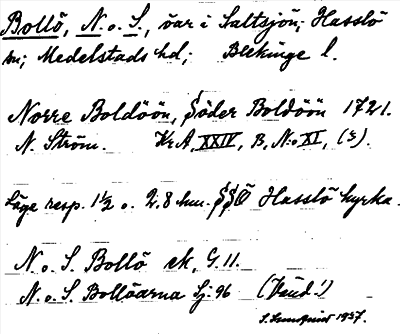 Bollö, N. o. S., öar i Saltsjön; Hasslö
sn; Medelstads hd; Blekinge l.
Norre Boldöön, Söder Boldöön 1721.
N. Ström. KrA, XXIV, B, N:o XI, (3).
Läge resp. 1½ o. 2,8 km. SSÖ Hasslö kyrka.
N. o. S. Bollö ek, G. 11.
N. o. S. Bollöarna Sj. 96
1937.